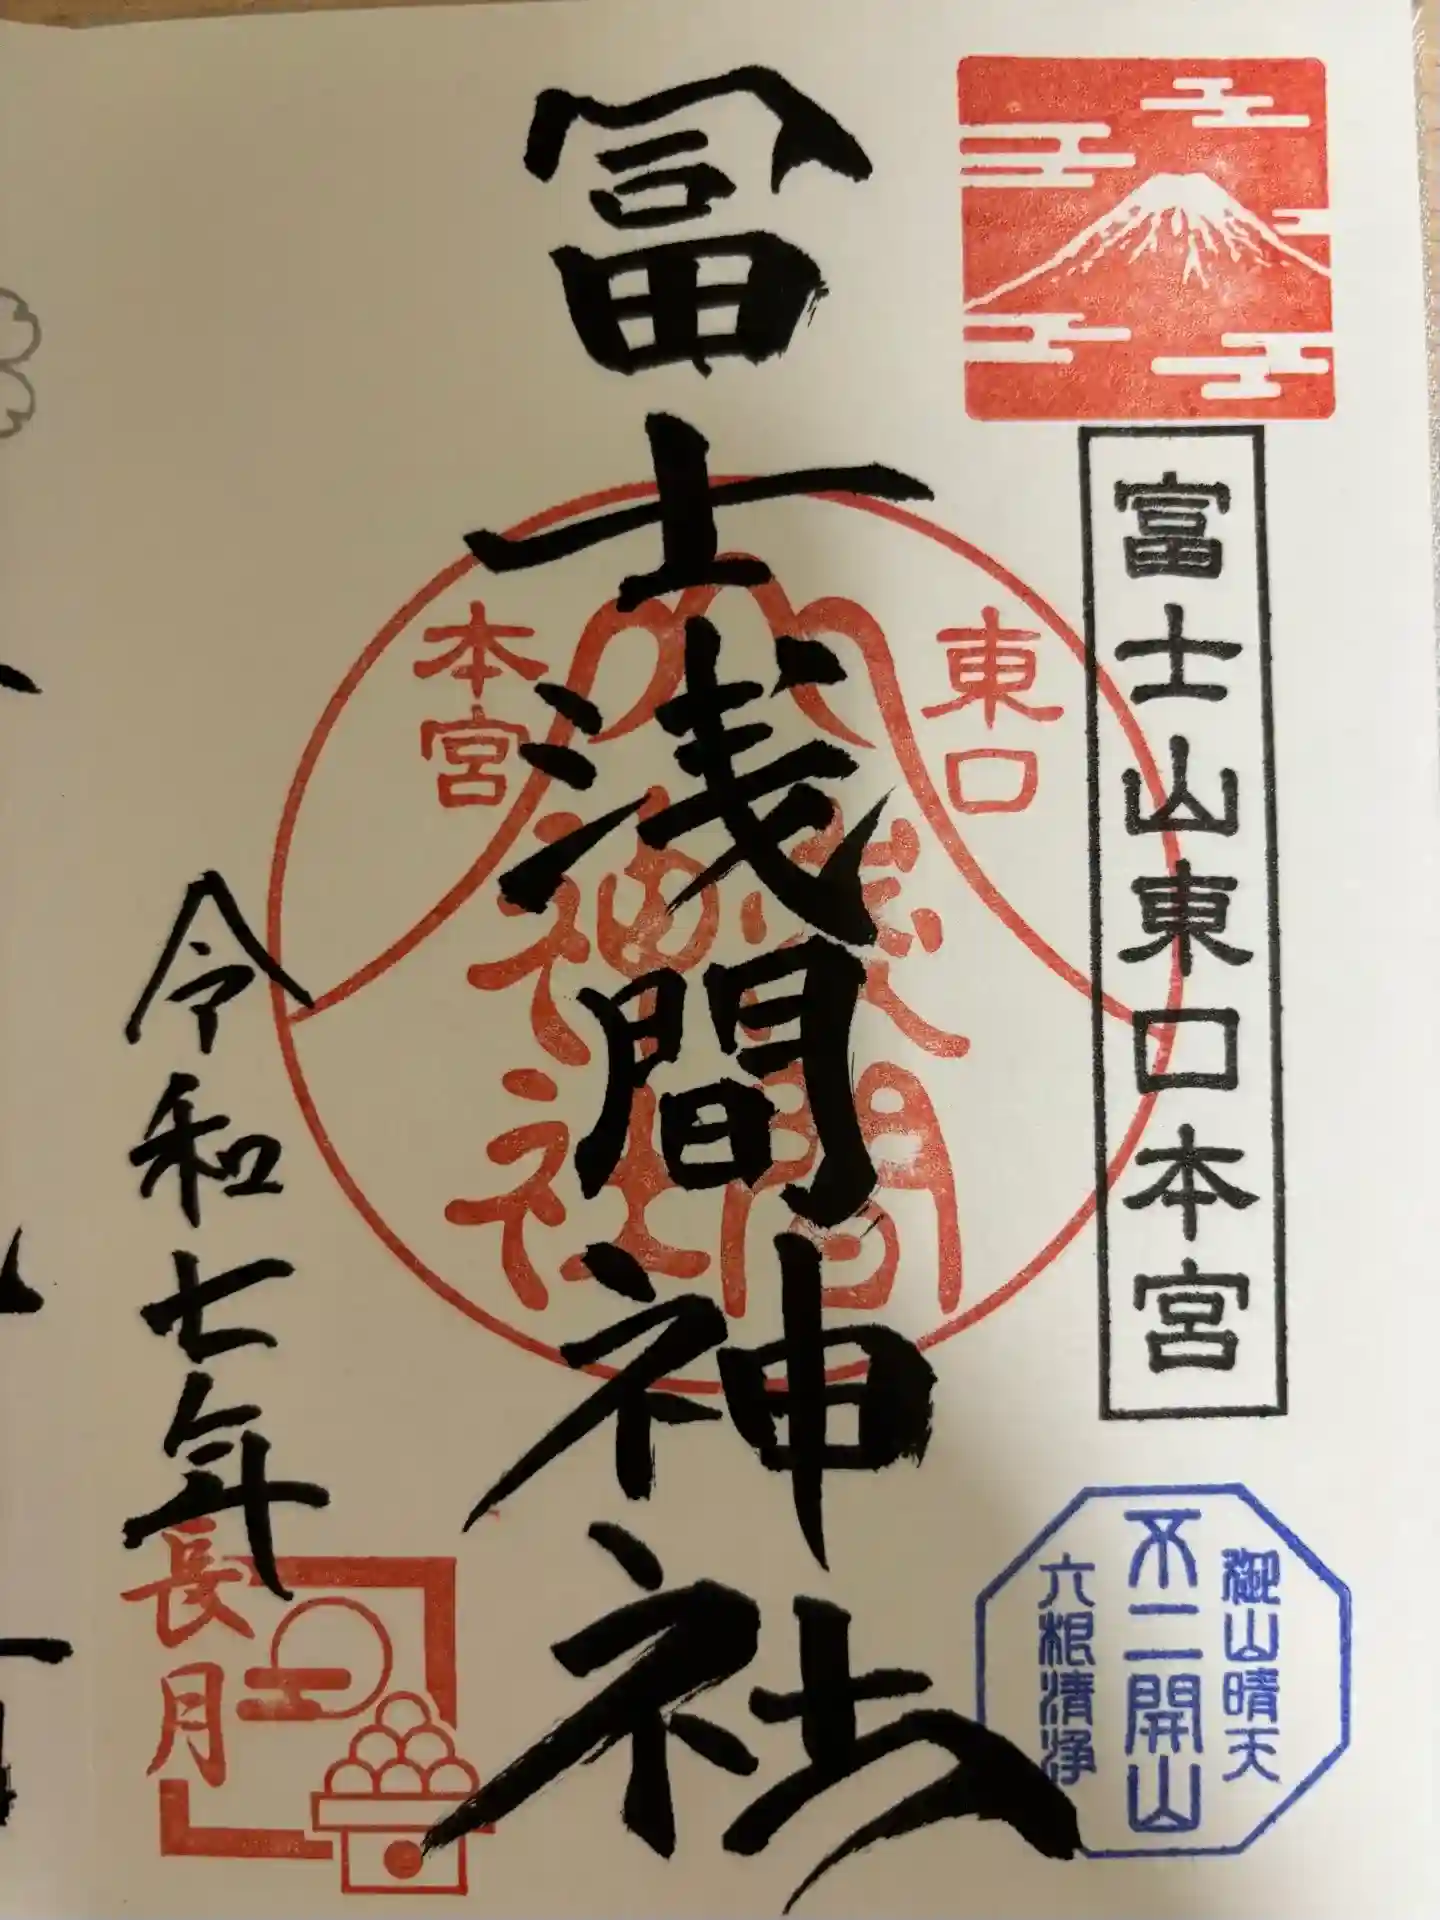 富士山東口本宮
御山晴天
不二開山
六根清浄
冨士浅間神社
東口
本宮
浅間
神社
令和七年
長月